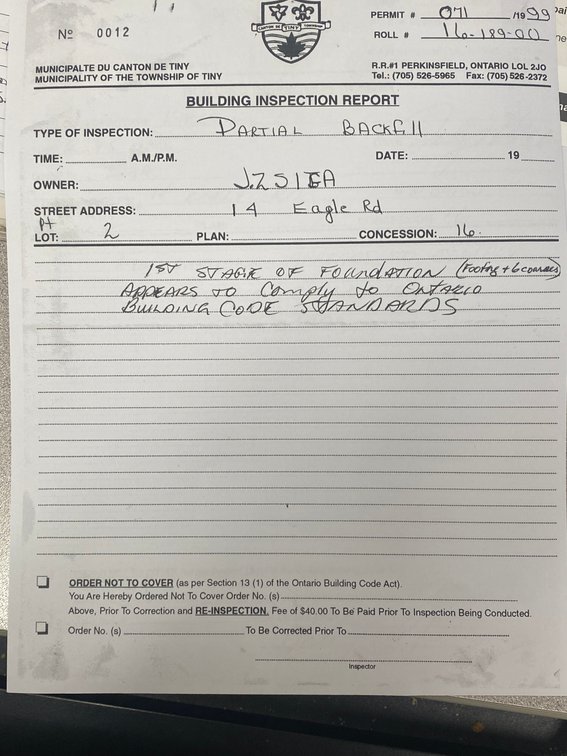 PERMIT # 071 /1999
Nº 0012
ROLL # 16-189-00
CANTON DE TINY TOWNSHIP
MUNICIPALTE DU CANTON DE TINY
MUNICIPALITY OF THE TOWNSHIP OF TINY
R.R.#1 PERKINSFIELD, ONTARIO LOL 2JO
Tel.: (705) 526-5965 Fax: (705) 526-2372
BUILDING INSPECTION REPORT
TYPE OF INSPECTION: PARTIAL BACKFill
TIME: A.M./P.M. DATE: 19
OWNER: J. ZSIGA
STREET ADDRESS: 14 Eagle Rd
Pt
LOT: 2 PLAN: CONCESSION: 16
1ST STAGE OF FOUNDATION (Footing + 6 courses)
APPEARS TO Comply to ONTARIO
BUILDING CODE STANDARDS
ORDER NOT TO COVER (as per Section 13 (1) of the Ontario Building Code Act).
You Are Hereby Ordered Not To Cover Order No. (s)
Above, Prior To Correction and RE-INSPECTION. Fee of $40.00 To Be Paid Prior To Inspection Being Conducted.
Order No. (s) To Be Corrected Prior To
Inspector